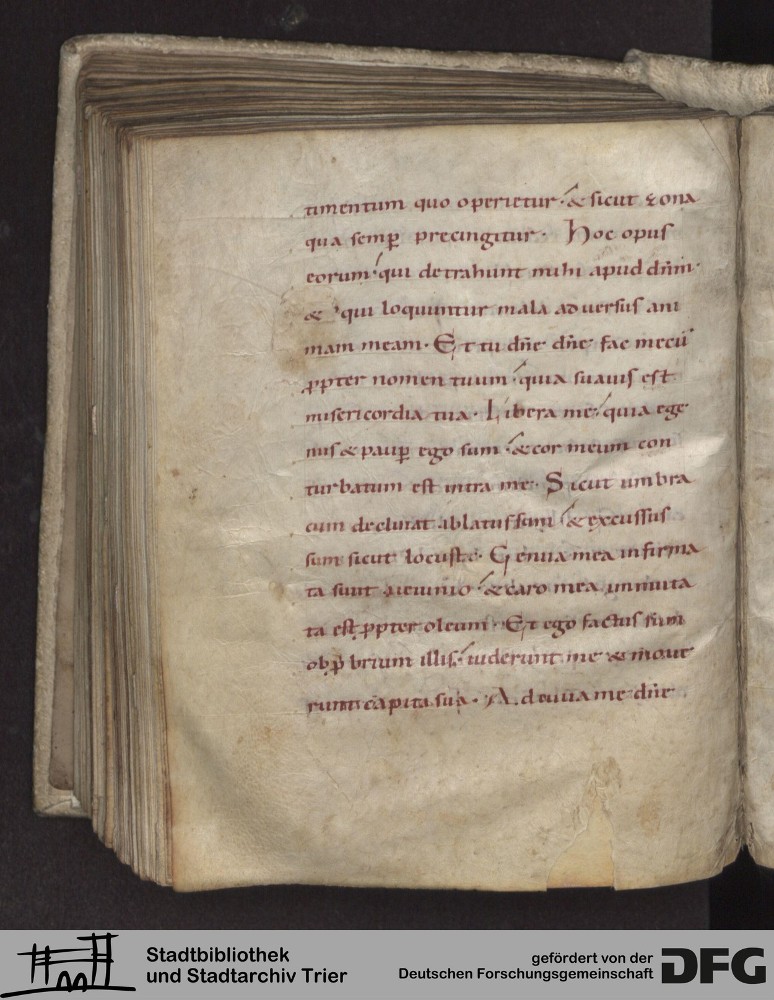 timentum quo operietur· & sicut zona
qua semp̄ precingitur· Hoc opus
eorum· qui detrahunt mihi apud dn̄m·
& qui loquuntur mala adversus ani
mam meam· Et tu dn̄e dn̄e fac mecū
ꝓpter nomen tuum· quia suavis est
misericordia tua· Libera me· quia ege
nus & paup̄ ego sum· & cor meum con
turbatum est intra me· Sicut umbra
cum declinat ablatus sum· & excussus
sum sicut locustę· Genua mea infirma
ta sunt a ieiunio· & caro mea inmuta
ta est ꝓpter oleum· Et ego factus sum
obp̄brium illis· viderunt me & move
runt capita sua· Adiuva me dn̄e
Stadtbibliothek
und Stadtarchiv Trier
gefördert von der
Deutschen Forschungsgemeinschaft
DFG